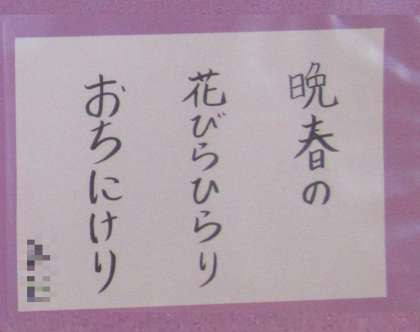 晩春の
花びらひらり
おちにけり